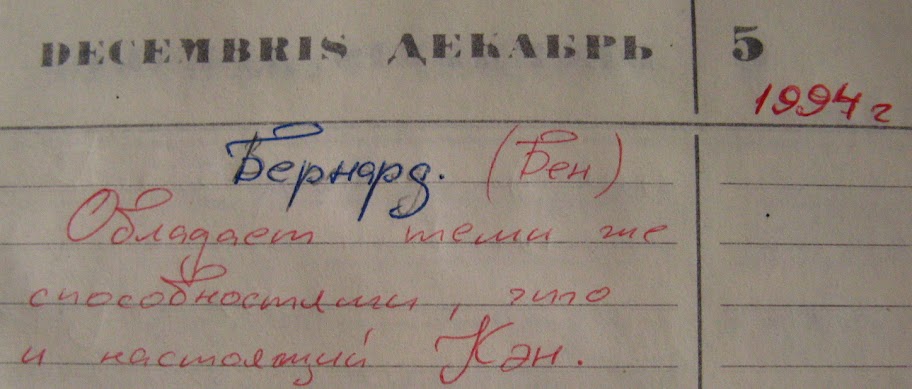 DECEMBRIS ДЕКАБРЬ 5
1994 г
Бернард. (Бен)
Обладает теми же
способностями, что
и настоящий Кэн.